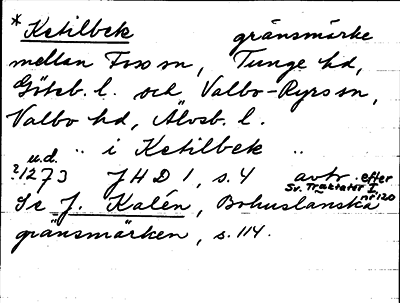 * Ketilbek gränsmärke
mellan Foss sn, Tunge hd,
Göteb. l. och Valbo-Ryrs sn,
Valbo hd, Älvsb. l.
" i Ketilbek "
u.d.
?1273 JHD 1, s. 4 avtr. efter
Sv. Traktater I
nr 120
Se J. Kalén, Bohuslänska
gränsmärken, s. 114.